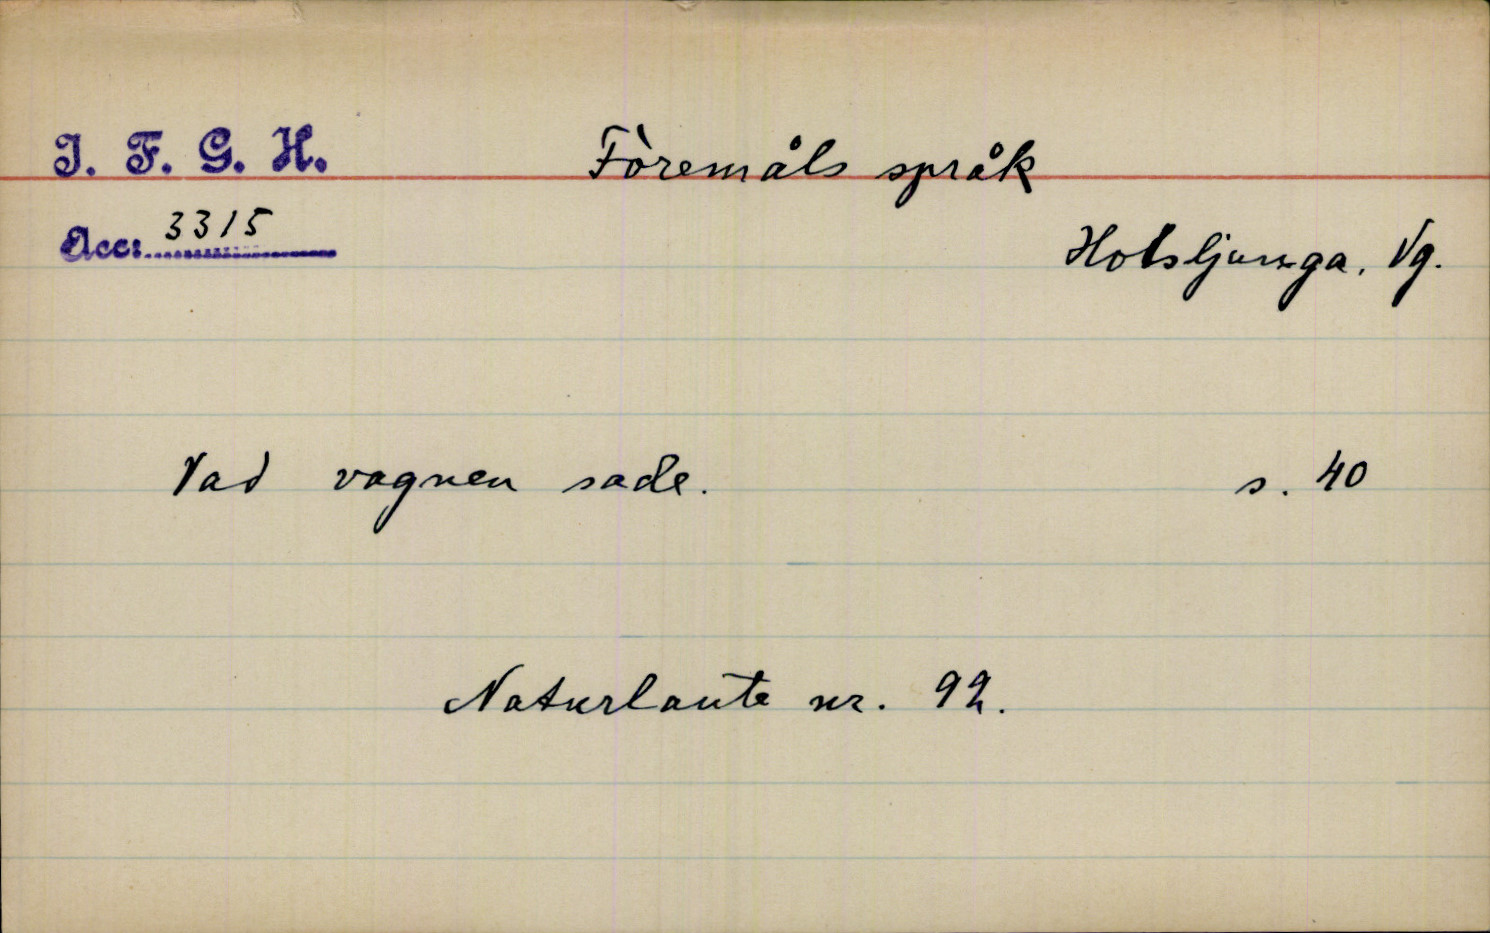 I. F. G. H.
Föremåls språk
Acc: 3315
Holsljunga. Vg.
Vad vagnen sade. s. 40
Naturlaute nr. 92.